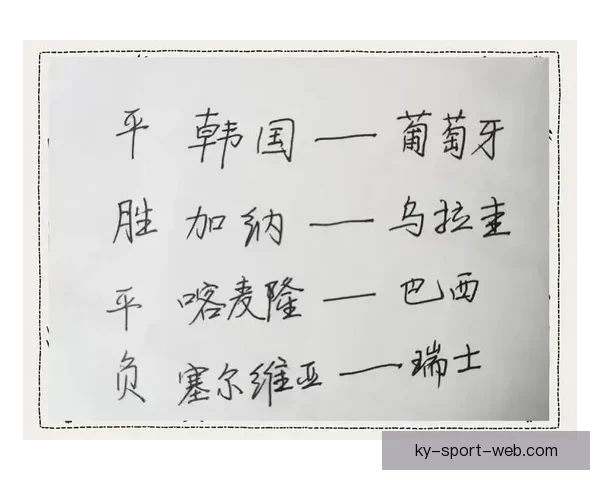 平 韩国 — 葡萄牙
胜 加纳 — 乌拉圭
平 喀麦隆 — 巴西
负 塞尔维亚 — 瑞士
ky-sport-web.com